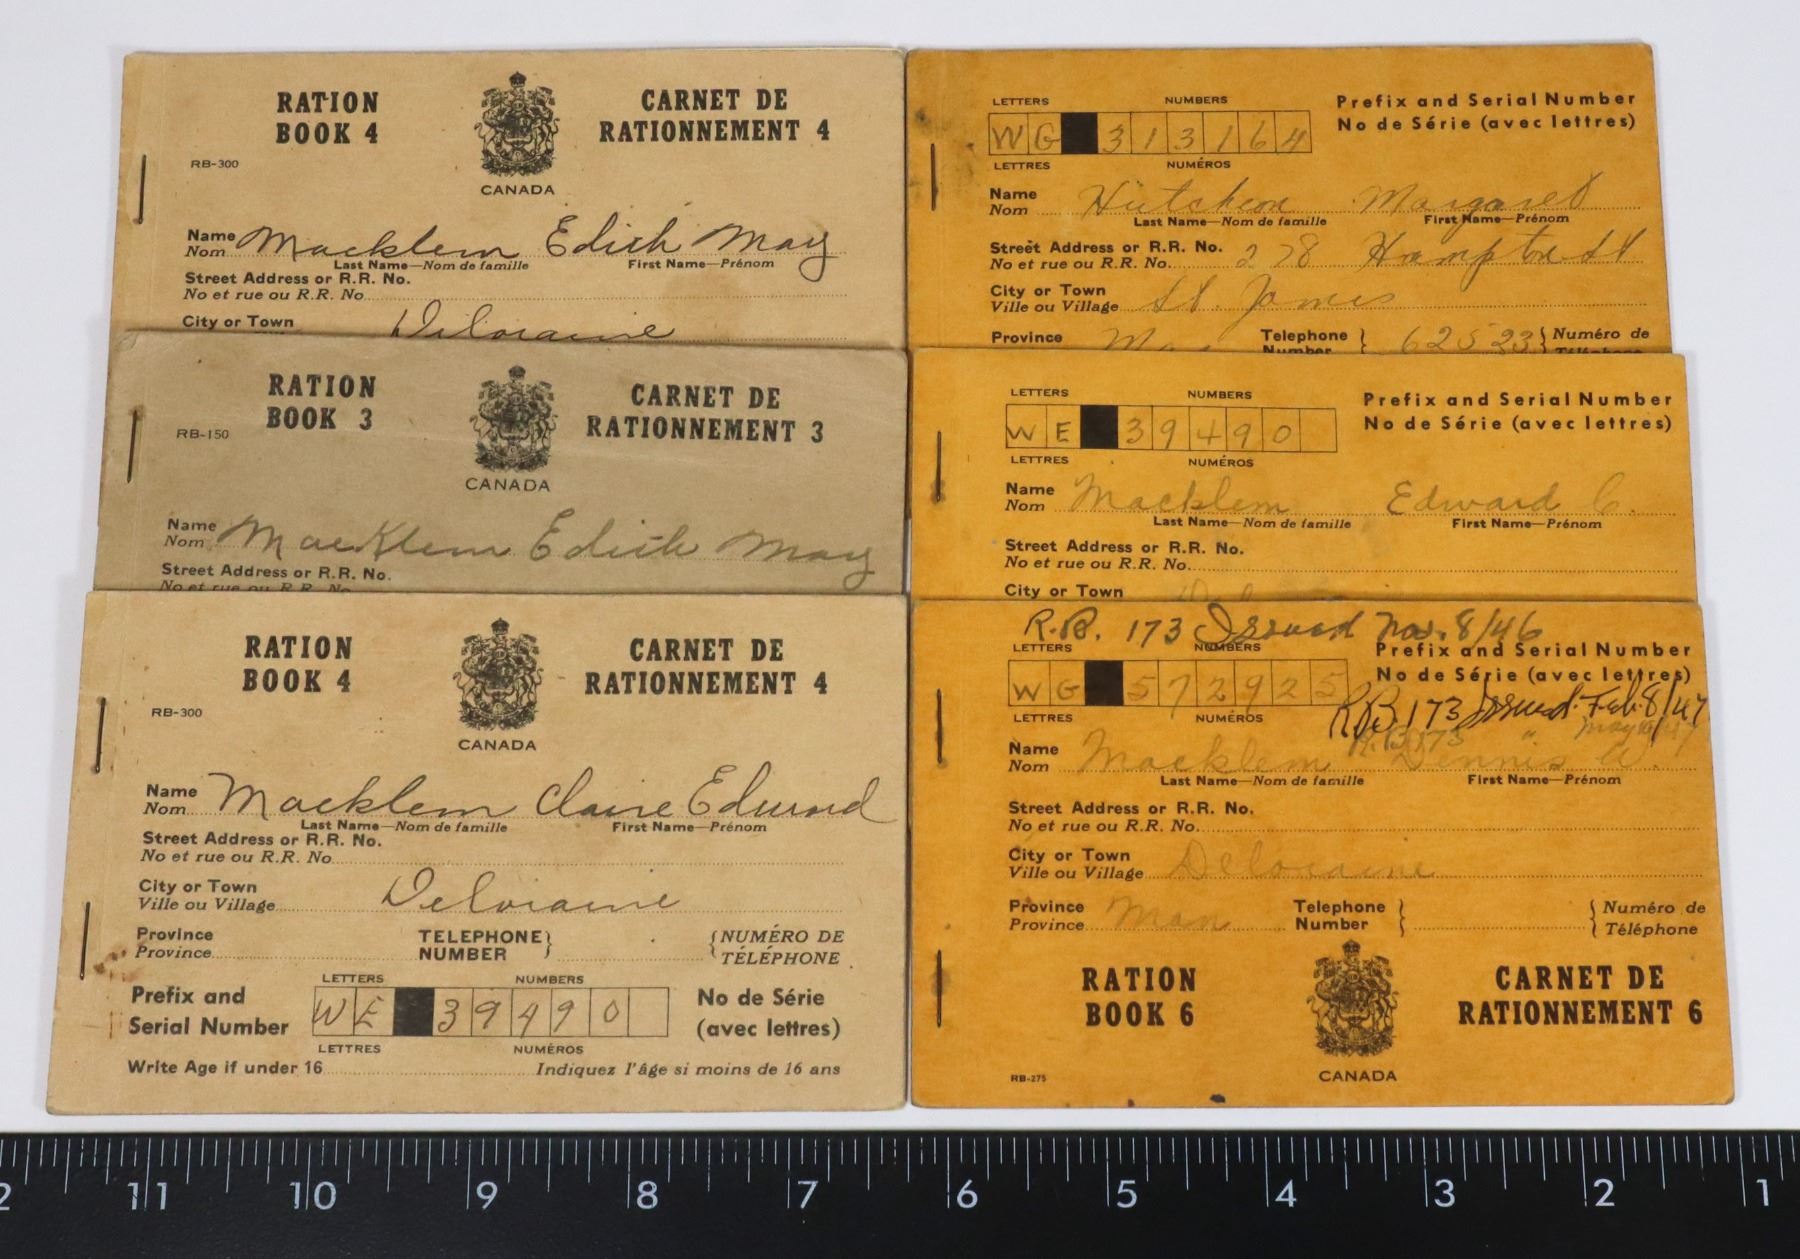 RATION BOOK 4
CARNET DE RATIONNEMENT 4
RB-300
CANADA
Name Macklem Edith May
Nom
Last Name—Nom de famille First Name—Prénom
Street Address or R.R. No.
No et rue ou R.R. No
City or Town Deloraine
RATION BOOK 3
CARNET DE RATIONNEMENT 3
RB-150
CANADA
Name Macklem Edith May
Nom
Last Name—Nom de famille First Name—Prénom
Street Address or R.R. No.
No et rue ou R.R. No
RATION BOOK 4
CARNET DE RATIONNEMENT 4
RB-300
CANADA
Name Macklem Claire Edward
Nom
Last Name—Nom de famille First Name—Prénom
Street Address or R.R. No.
No et rue ou R.R. No
City or Town Deloraine
Ville ou Village
Province TELEPHONE NUMÉRO DE
Province NUMBER TÉLÉPHONE
LETTERS NUMBERS
Prefix and Serial Number WE 39490 No de Série (avec lettres)
LETTRES NUMÉROS
Write Age if under 16 Indiquez l'âge si moins de 16 ans
LETTERS NUMBERS Prefix and Serial Number
WG 313164 No de Série (avec lettres)
LETTRES NUMÉROS
Name Hutcheon Margaret
Nom
Last Name—Nom de famille First Name—Prénom
Street Address or R.R. No. 278 Hampton St
No et rue ou R.R. No.
City or Town St. James
Ville ou Village
Province Telephone 62523 Numéro de
Number Téléphone
LETTERS NUMBERS Prefix and Serial Number
WE 39490 No de Série (avec lettres)
LETTRES NUMÉROS
Name Macklem Edward C.
Nom
Last Name—Nom de famille First Name—Prénom
Street Address or R.R. No.
No et rue ou R.R. No.
City or Town
R.B. 173 Issued Nov. 8/46
LETTERS NUMBERS Prefix and Serial Number
WG 572925 No de Série (avec lettres)
LETTRES NUMÉROS R.B. 173 Issued Feb. 8/47
R.B. 173 "
Name Macklem Dennis W.
Nom
Last Name—Nom de famille First Name—Prénom
Street Address or R.R. No.
No et rue ou R.R. No.
City or Town Deloraine
Ville ou Village
Province Man Telephone Numéro de
Province Number Téléphone
RATION BOOK 6
CARNET DE RATIONNEMENT 6
RB-275
CANADA
2 11 10 9 8 7 6 5 4 3 2 1